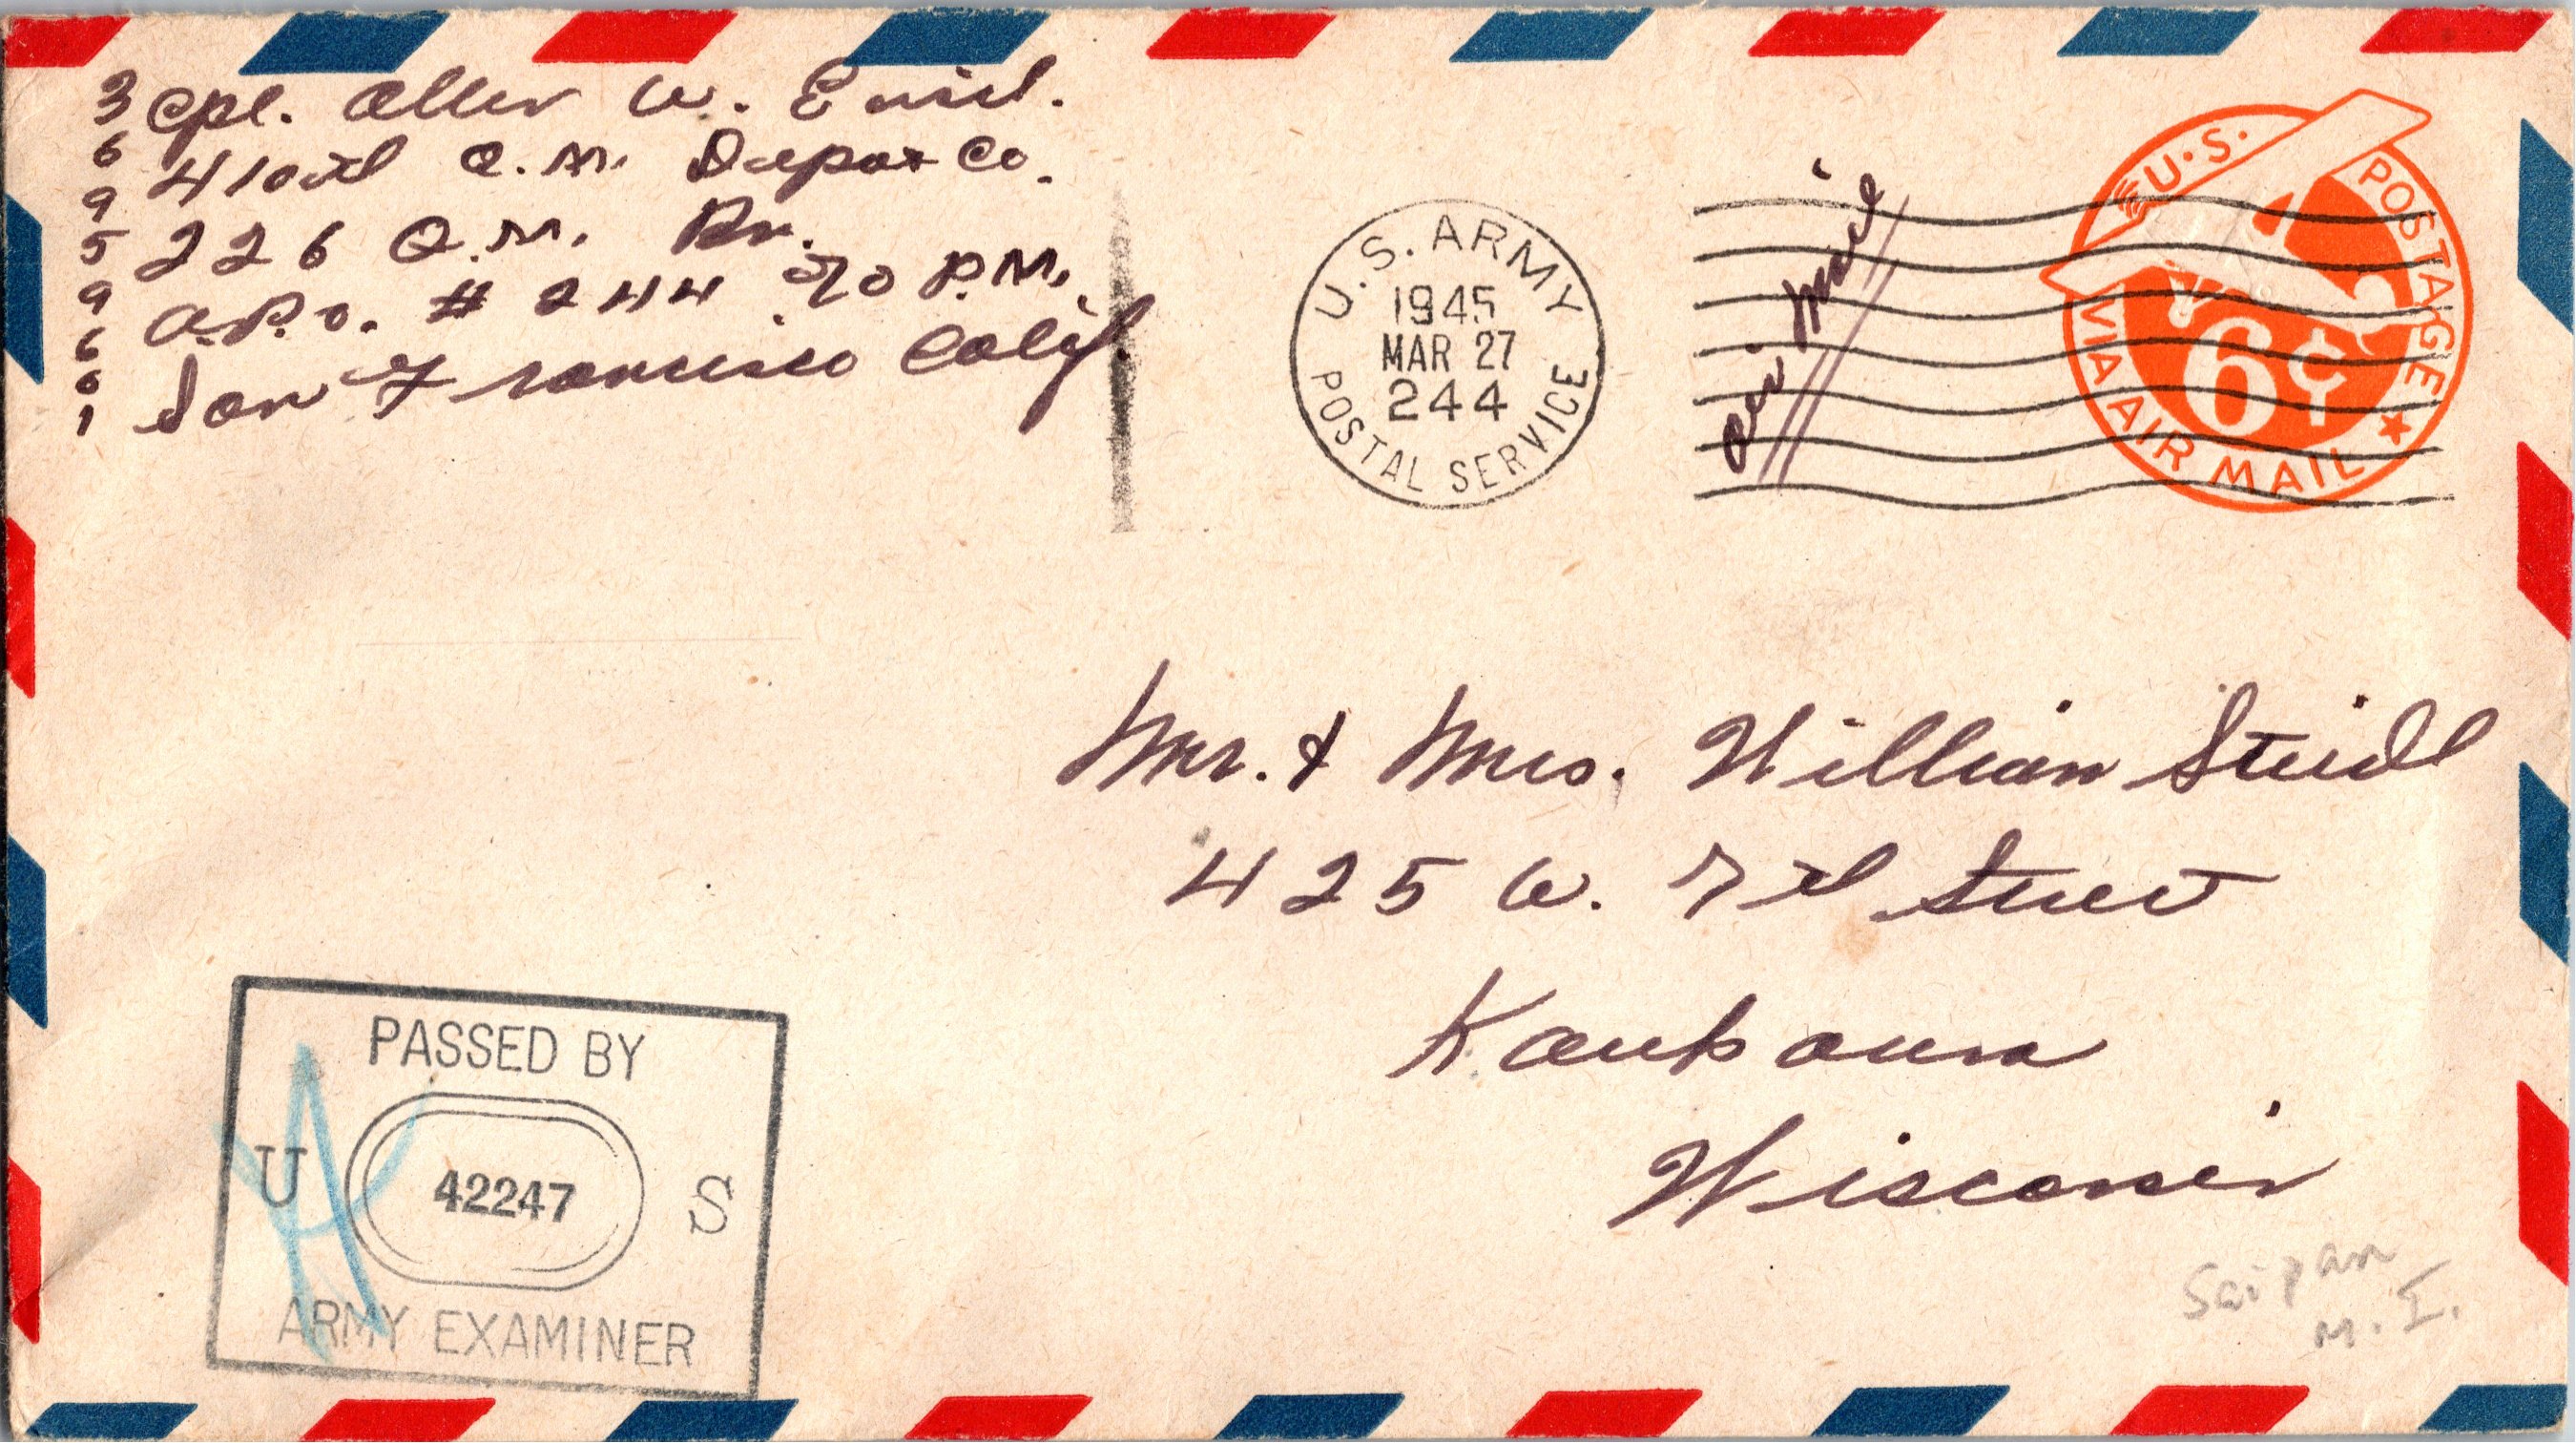 36959661
Cpl. Allen W.
410th Q.M. Depot Co.
226 Q.M. Bn.
A.P.O. # 244 % P.M.
San Francisco Calif.
U.S. ARMY POSTAL SERVICE
1945
MAR 27
244
air mail
U.S. POSTAGE
6¢
VIA AIR MAIL
Mr. & Mrs. William
425 W. 7th Street
Kaukauna
Wisconsin
PASSED BY
U 42247 S
ARMY EXAMINER
Saipan
M.I.